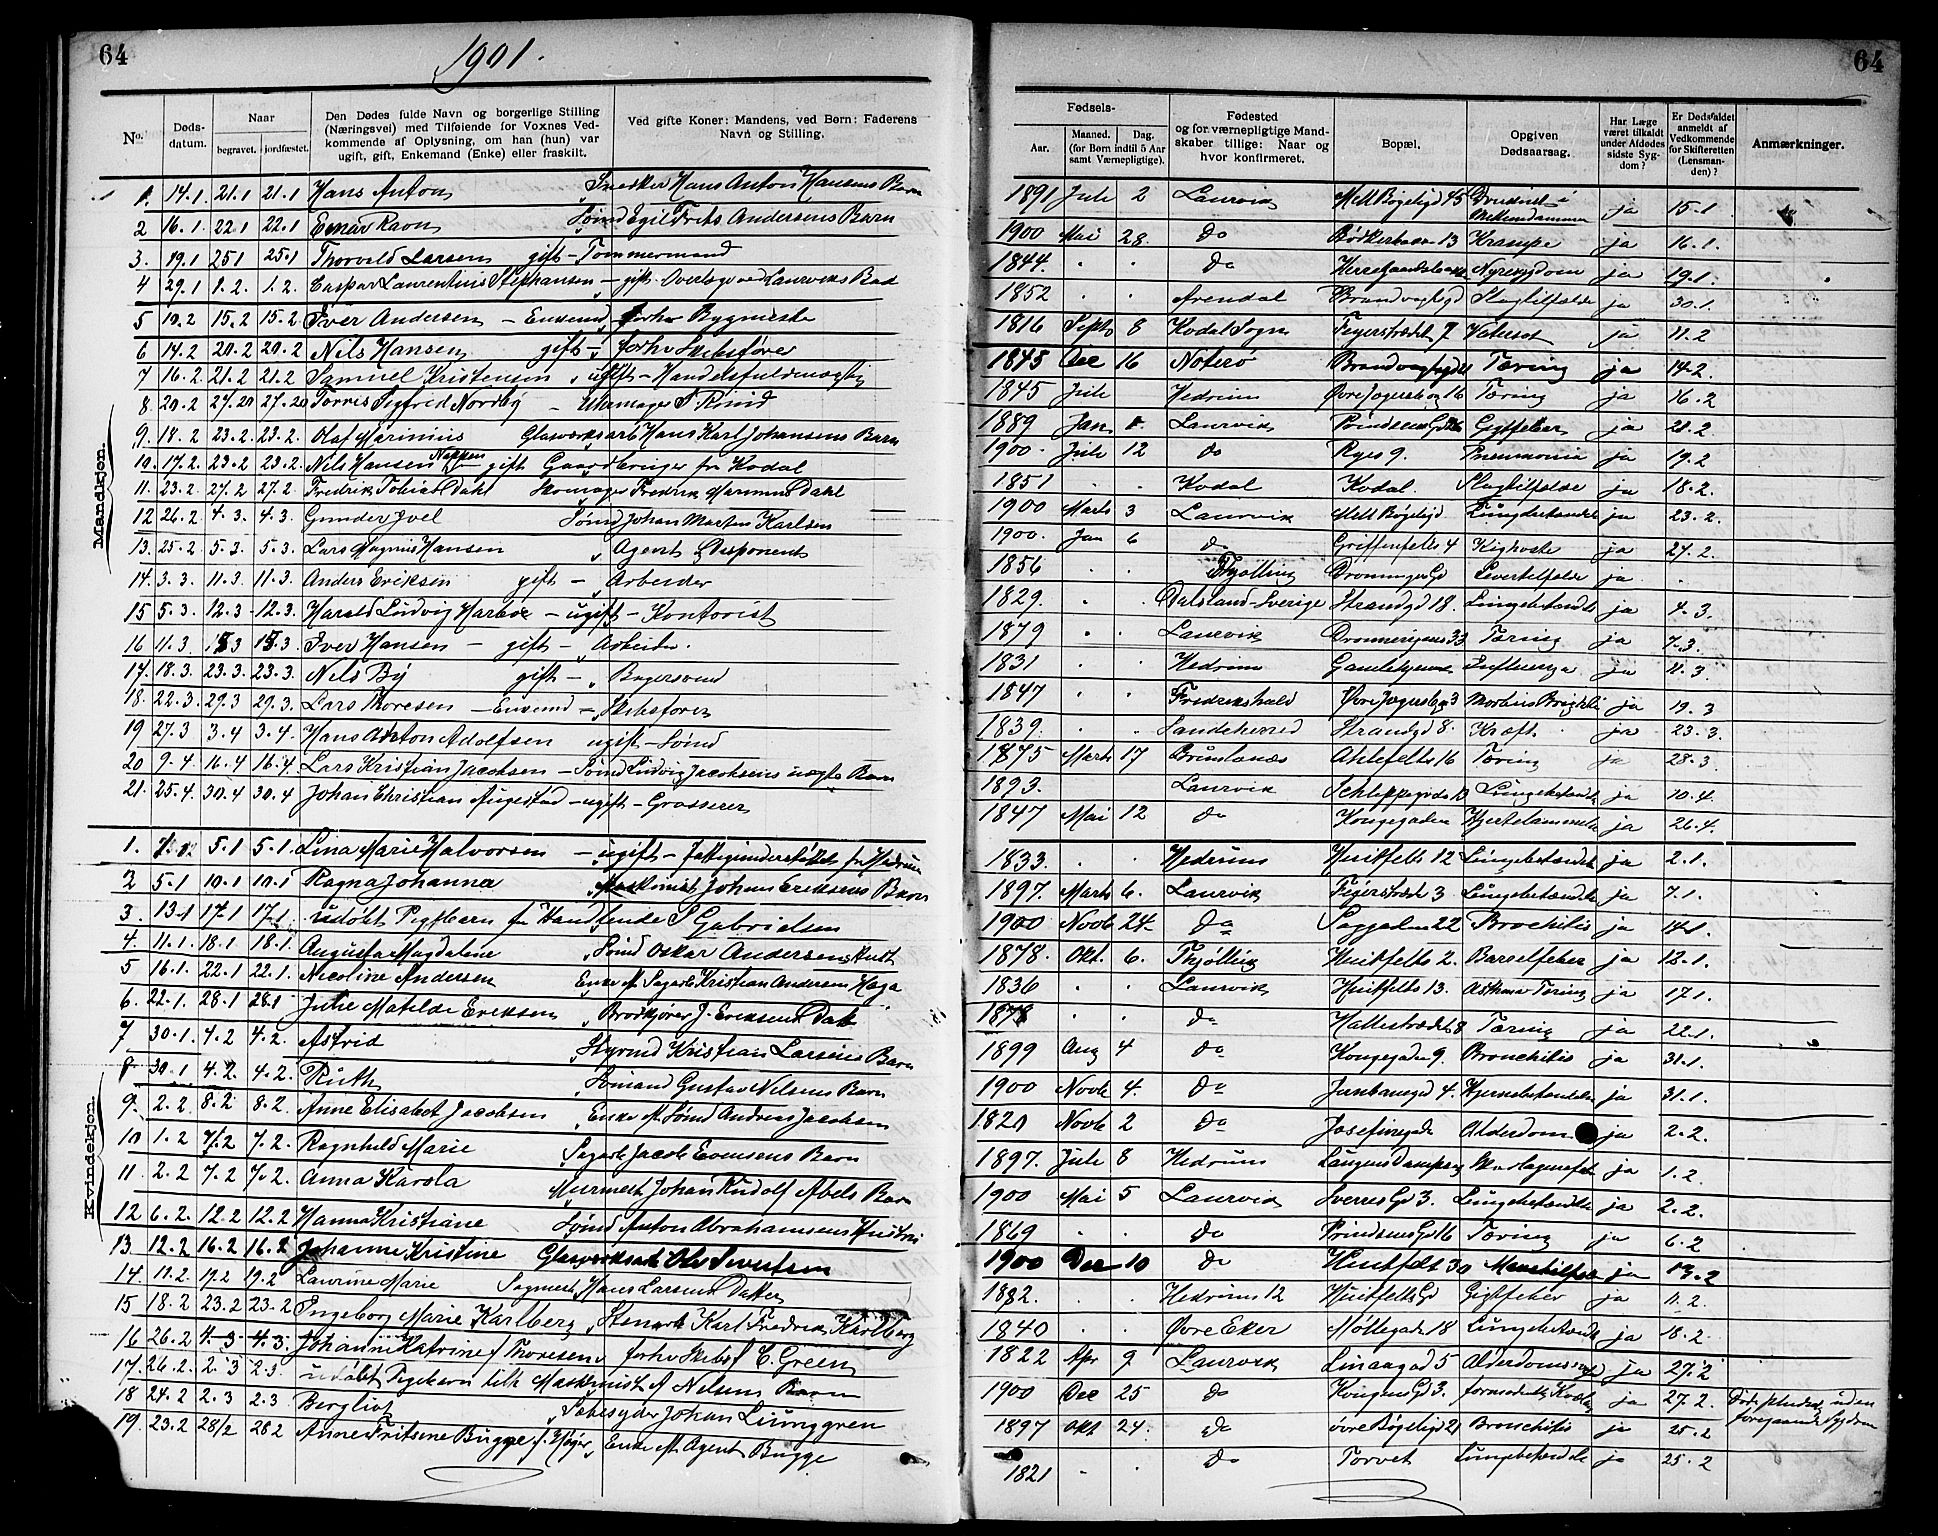 64
1901.
64
No.
Døds-datum.
Naar begravet. jordfæstet.
Den Dødes fulde Navn og borgerlige Stilling (Næringsvei) med Tilføiende for Voxnes Vedkommende af Oplysning, om han (hun) var ugift, gift, Enkemand (Enke) eller fraskilt.
Ved gifte Koner: Mandens, ved Børn: Faderens Navn og Stilling.
Fødsels- Aar. Maaned. Dag. (for Børn indtil 5 Aar samt Værnepligtige).
Fødested og for værnepligtige Mandskaber tillige: Naar og hvor konfirmeret.
Bopæl.
Opgiven Dødsaarsag.
Har Læge været tilkaldt under Afdødes sidste Sygdom?
Er Dødsfaldet anmeldt af Vedkommende for Skifteretten (Lensmanden)?
Anmærkninger.
Mandkjøn.
1. 14.1 21.1 21.1 Hans Anton Snedker Hans Anton Hansens Barn 1891 Juli 2 Laurvik Mell Bøgeligd 45 Druknet i Mellemdammen ja 15.1
2 16.1 22.1 22.1 Einar Ravn Sømd Egil Frits Andersens Barn 1900 Mai 28. do 13 Krampe ja 16.1.
3. 19.1 25.1 25.1 Thorvald Larsen gift - Tømmermand 1844. do Nyresygdom ja 19.1.
4 29.1 1.2. 1.2. Caspar Laurentius Stephansen - gift. Overlæge ved Laurviks Bad 1852 Arendal Brandvagtgd Slagtilfælde ja 30.1.
5 10.2 15.2 15.2 Iver Andersen - Enkemd forhv Bygmester 1816 Septb 8 Kodal Sogn Feyerstrædet 7 Vatersot ja 11.2
6 14.2 20.2 20.2 Nils Hansen gift - forhv Skibsfører 1845 Dec 16 Nøterø Brandvagtgd Tæring ja 14.2.
7 16.2. 21.2 21.2 Samuel Kristensen ugift - Handelsfuldmægtig 1845 Juli Hedrum Øvre Jegersborg 16 Tæring ja 16.2
8. 20.2 27.2 27.2 Torris Sigfred Nordby - Uhrmager S. Rønd 1889 Jan Laurvik Prindsens Gd Gigtfeber ja 21.2.
9. 18.2 23.2. 23.2. Olaf Marinius Glasværksarb Hans Karl Johansens Barn 1900. Juli 12 do Ryes 9. Pneumonia ja 19.2
10. 17.2. 23.2 23.2. Nils Hansen gift Gaardbruger fra Kodal 1851 Kodal Kodal. Slagtilfælde ja 18.2.
11. 23.2. 27.2 27.2. Fredrik Tobias Dahl Skomager Fredrik Marinius Dahl 1900 Marts 3 Laurvik Mell Bøgeligd Lungebetændelse ja 23.2.
12 26.2. 4.3. 4.3. Gunder Joel Sømd Johan Martin Karlsen 1900. Jan 6 do Griffenfelts 4 Kighoste ja 27.2.
13. 25.2 5.3. 5.3. Lars Magnus Hansen Agent Disponent 1856 Thjølling Dronningens Gd Levertilfælde ja
14. 3.3. 11.3. 11.3. Anders Eriksen gift - Arbeider 1829. Dalsland Sverige Strandgd 18. Lungebetændelse ja 4.3.
15 5.3. 12.3 12.3. Harald Ludvig Harboe - ugift - Kontorist 1879 Laurvik Dronningens 33 Tæring ja 7.3.
16 11.3. 15.3 15.3. Iver Hansen - gift - Arbeider. 1831 Hedrum Influenza ja 11.3.
17. 18.3. 23.3 23.3. Nils By gift - Bagersvend 1847 Fredrikshald Øvre Jegersborg 3 Morbus Brightii ja 19.3
18. 22.3. 29.3 29.3. Lars Thoresen - Enkemd - Skibsfører 1839. Sandeherred Strandgd 8. Kræft ja 23.3.
19 27.3 3.4 3.4. Hans Anton Adolfsen ugift - Sømd 1875 Marts 17 Brunlanæs Ahlefelts 16 Tæring ja 28.3.
20 9.4 16.4 16.4. Lars Kristian Jacobsen - Sømd Ludvig Jacobsens uægte Barn 1893. Laurvik Lungebetændelse ja 10.4.
21. 25.4. 30.4 30.4 Johan Christian Augestad - ugift - Grosserer 1847 Mai 12 do Kongegaden Hjertelammelse ja 26.4.
Kvindekjøn.
1. 5.1 5.1. Lina Marie Halvorsen - ugift - fattigunderstøttet fra Hedrum 1833. Hedrum Huitfelts 12 Lungebetændelse ja 2.1.
2 5.1 10.1 10.1 Ragna Johanna Maskinist Johan Eriksens Barn 1897. Marts 6. Laurvik Feyerstrædet 3 Lungebetændelse ja 7.1.
3. 13.1 17.1 17.1. udøbt Pigebarn fra Handlende S Gabrielsen 1900 Novb 24 do Saggaden 22 Bronchitis ja 14.1.
4. 11.1. 18.1 18.1. Augusta Magdalene Sømd Oskar Andersens Hust 1878. Okt. 6. Thjølling Huitfelts 2. Barselfeber ja 12.1.
5 16.1. 22.1 22.1. Nicoline Andersen Enke af Sagarb Kristian Andersen Haga 1836 Laurvik Huitfelts 13. Asthma Tæring ja 17.1.
6. 22.1. 28.1 28.1 Julie Matilde Eriksen Brodkjører J. Eriksens Dat 1878 do Hattestrædet 8 Tæring ja 22.1.
7 30.1. 4.2 4.2. Astrid Styrmd Kristian Larsens Barn 1899 Aug 4 do Kongegaden 9. Bronchitis ja 31.1.
8. 30.1 4.2. 4.2. Ruth Sømand Gustav Nilsens Barn 1900 Novb 4. do Jernbanegd 4. Hjernebetændelse ja 31.1.
9. 2.2. 8.2 8.2. Anne Elisabet Jacobsen Enke af Sømd Andreas Jacobsen 1820 Novb 2 do Josefinegade Alderdom ja 2.2.
10 1.2 7.2 7.2. Ragnhild Marie Sagarb Jacob Evensens Barn 1897. Juli 8 Hedrum ja 1.2.
11. 2.2 7.2 7.2. Anna Karola Murmest Johan Rudolf Abels Barn 1900 Mai 5 Laurvik Sverres Gd 3. Lungebetændelse ja 2.2.
12 6.2. 12.2 12.2 Hanna Kristiane Sømd Anton Abrahamsens Hustru 1869 do Prindsens Gd 16 Tæring ja 6.2
13. 12.2 16.2 16.2 Johanne Kristine Glasværksarb Ole Sivertsen 1900 Dec 10 do Huitfelt 30 ja 13.2
14. 11.2. 17.2 17.2 Laurine Marie Sagmest Hans Larsens Datter 1882. Hedrum 12 Huitfelts Gd Gigtfeber ja 11.2.
15 18.2 23.2 23.2 Ingeborg Marie Karlberg, Stenarb Karl Fredrik Karlberg 1840 Øvre Eker Møllegaden 18 Lungebetændelse ja 18.2
16 26.2 4.3 4.3. Johanne Katrine f Thoresen forhv Skibsf C. Green 1822 Apr 9 Laurvik Linaagad 5 Alderdomssvag ja 27.2
17. 26.2. 2.3 2.3. udøbt Pigebarn till Maskinist A Nilsens Barn 1900 Dec 25 do Kongens Gd 3. ja 27.2. Død pludselig uden foregaaende Sygdom
18 24.2 2.3 2.3 Bergliot Sæbesyder Johan Liunggren 1897 Okt 24. do øvre Bøgeligd 21 Bronchitis ja 25.2
19. 23.2 28/2 28.2 Anne Fritsine Bugge f. Høyer, Enke af Agent Bugge 1821 do Torvet Lungebetændelse ja 25.2